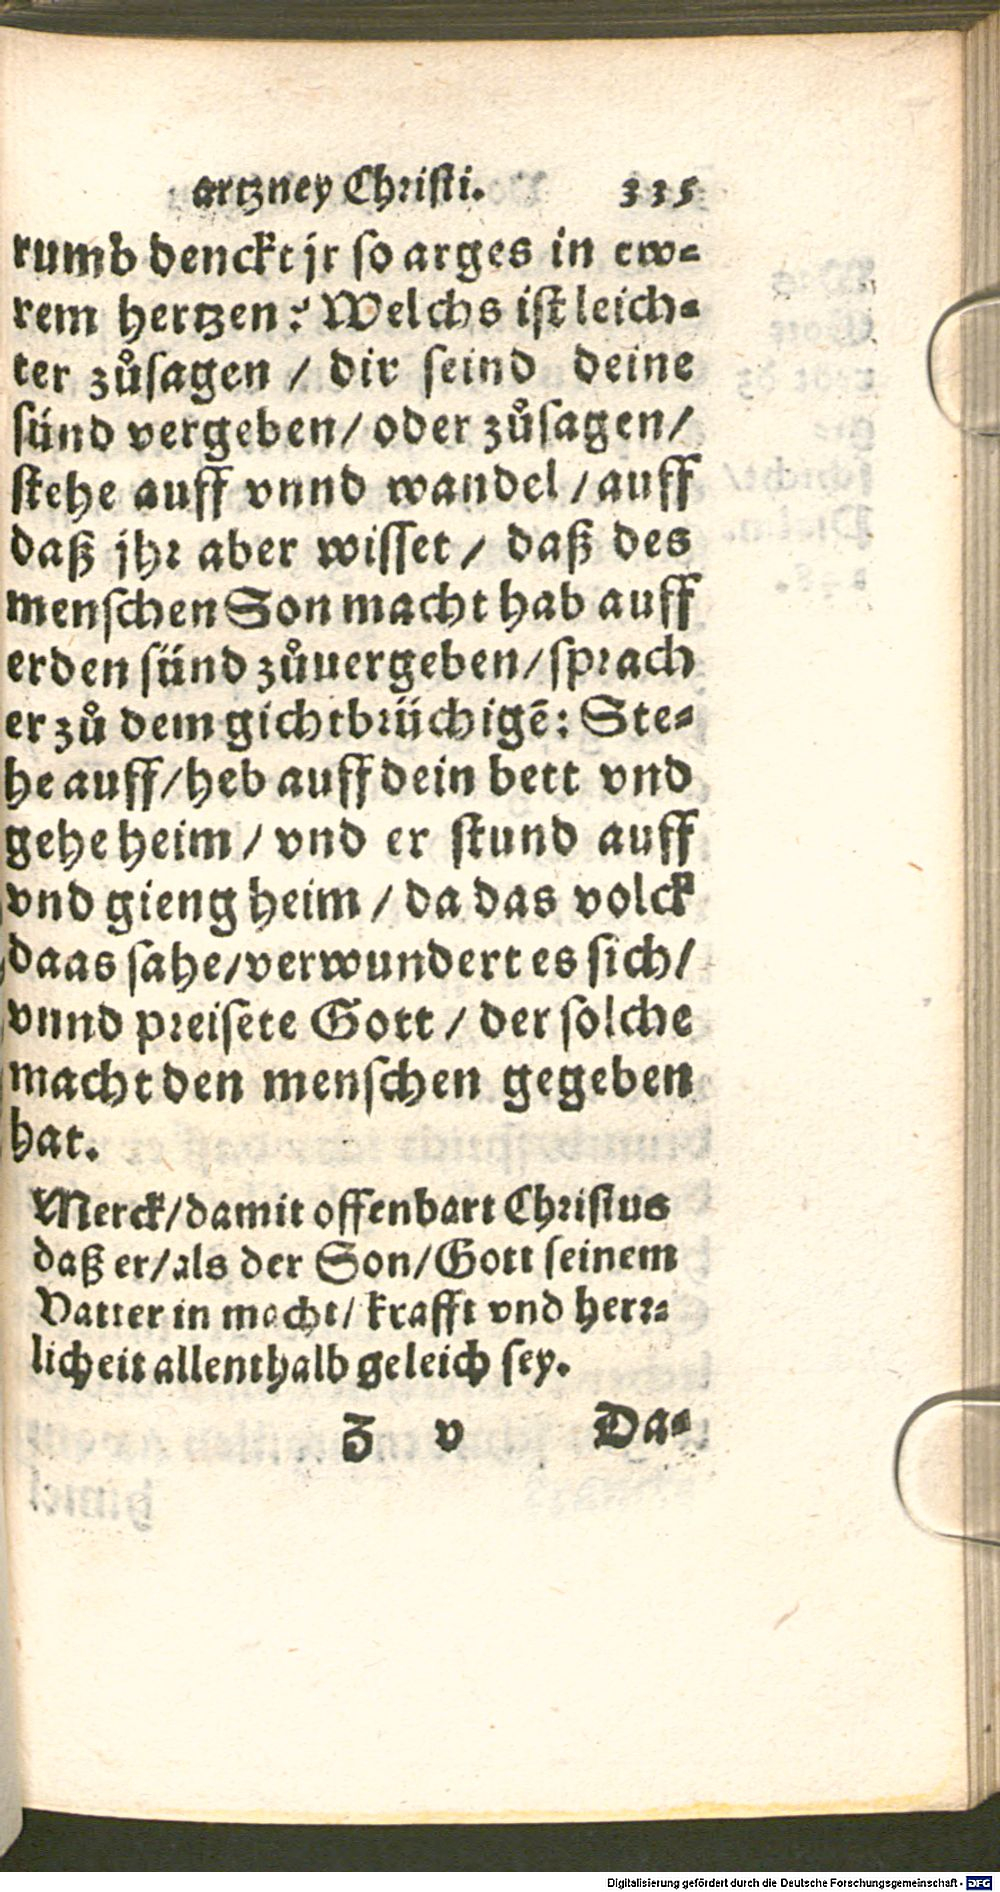 artzney Christi. 335
rumb denckt jr so arges in ew-
rem hertzen? Welchs ist leich-
ter zůsagen / dir seind deine
sünd vergeben/ oder zůsagen/
stehe auff vnnd wandel / auff
daß jhr aber wisset / daß des
menschen Son macht hab auff
erden sünd zůuergeben/ sprach
er zů dem gichtbrüchigẽ: Ste-
he auff/ heb auff dein bett vnd
gehe heim / vnd er stund auff
vnd gieng heim / da das volck
daas sahe/ verwundert es sich/
vnnd preisete Gott / der solche
macht den menschen gegeben
hat.
Merck/ damit offenbart Christus
daß er/ als der Son/ Gott seinem
Vatter in macht/ krafft vnd herr-
licheit allenthalb geleich sey.
Z v Da-
Digitalisierung gefördert durch die Deutsche Forschungsgemeinschaft - DFG